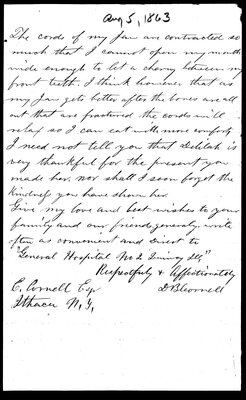 Aug 5, 1863
The cords of my Jaw are contracted so
much that I cannot open my mouth
wide enough to let a cherry between my
front teeth. I think however that as
my Jaw gets better after the bones are all
out that are fractured the cords will
relax so I can eat with more comfort
I need not tell you that Delilah is
very thankful for the present you
made her, nor shall I soon forget the
kindness you have shown her.
Give my love and best wishes to your
family and our friends generaly. write
often as convenient and Direct to
"General Hospital No 2 Quincy Ills"
Respectfully & Affectionately
E. Cornell Esqr D B Cornell
Ithaca N.Y.